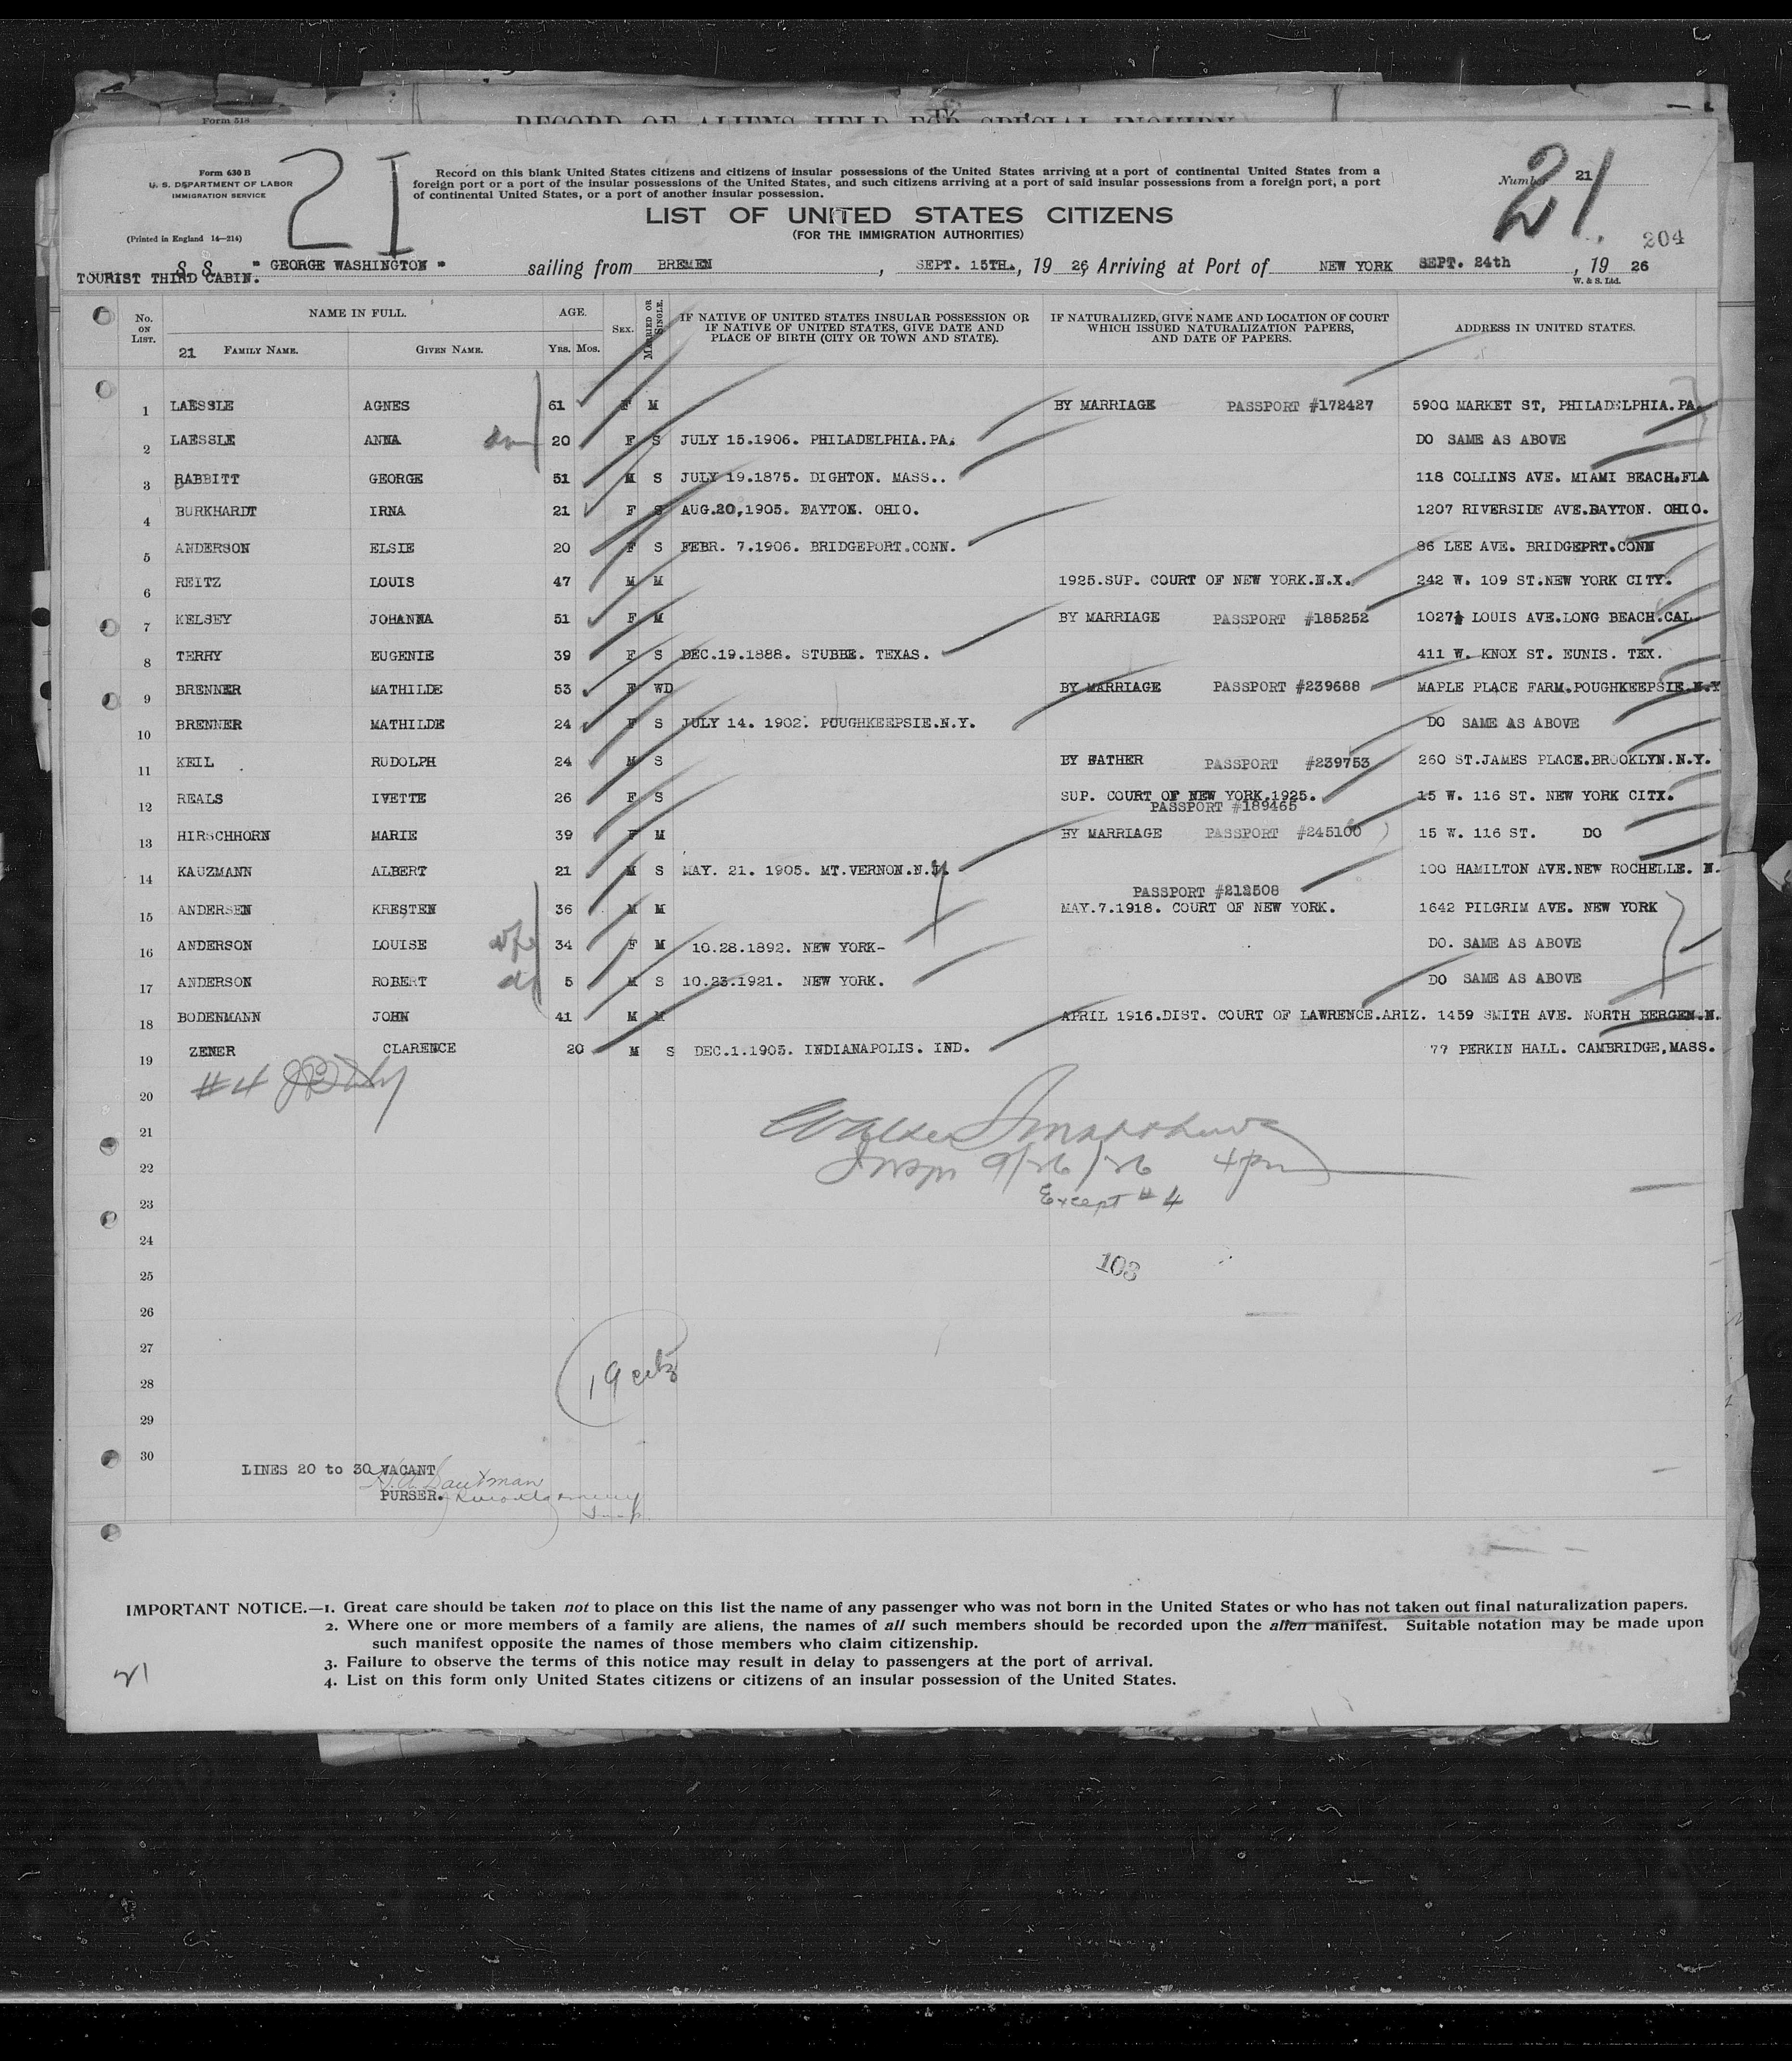 Form 518
RECORD OF ALIENS HELD FOR SPECIAL INQUIRY
Form 630 B
U. S. DEPARTMENT OF LABOR
IMMIGRATION SERVICE
(Printed in England 14—214)
21
Record on this blank United States citizens and citizens of insular possessions of the United States arriving at a port of continental United States from a
foreign port or a port of the insular possessions of the United States, and such citizens arriving at a port of said insular possessions from a foreign port, a port
of continental United States, or a port of another insular possession.
LIST OF UNITED STATES CITIZENS
(FOR THE IMMIGRATION AUTHORITIES)
Number 21
21.
204
S. S. " GEORGE WASHINGTON " sailing from BREMEN, SEPT. 15TH., 19 26, Arriving at Port of NEW YORK SEPT. 24th, 19 26
TOURIST THIRD CABIN.
W. & S. Ltd.
No. ON LIST. NAME IN FULL. AGE. SEX. MARRIED OR SINGLE. IF NATIVE OF UNITED STATES INSULAR POSSESSION OR IF NATIVE OF UNITED STATES, GIVE DATE AND PLACE OF BIRTH (CITY OR TOWN AND STATE). IF NATURALIZED, GIVE NAME AND LOCATION OF COURT WHICH ISSUED NATURALIZATION PAPERS, AND DATE OF PAPERS. ADDRESS IN UNITED STATES.
21 FAMILY NAME. GIVEN NAME. YRS. MOS.
1 LAESSLE AGNES 61 F M BY MARRIAGE PASSPORT #172427 5900 MARKET ST, PHILADELPHIA.PA.
2 LAESSLE ANNA 20 F S JULY 15.1906. PHILADELPHIA.PA. DO SAME AS ABOVE
3 BABBITT GEORGE 51 M S JULY 19.1875. DIGHTON. MASS.. 118 COLLINS AVE. MIAMI BEACH.FLA
4 BURKHARDT IRNA 21 F S AUG.20,1905. DAYTON. OHIO. 1207 RIVERSIDE AVE.DAYTON. OHIO.
5 ANDERSON ELSIE 20 F S FEBR. 7.1906. BRIDGEPORT.CONN. 86 LEE AVE. BRIDGEPRT.CONN
6 REITZ LOUIS 47 M M 1925.SUP. COURT OF NEW YORK.N.X. 242 W. 109 ST.NEW YORK CITY.
7 KELSEY JOHANNA 51 F M BY MARRIAGE PASSPORT #185252 1027½ LOUIS AVE.LONG BEACH.CAL.
8 TERRY EUGENIE 39 F S DEC.19.1888. STUBBE. TEXAS. 411 W. KNOX ST. EUNIS. TEX.
9 BRENNER MATHILDE 53 F WD BY MARRIAGE PASSPORT #239688 MAPLE PLACE FARM.POUGHKEEPSIE.N.Y
10 BRENNER MATHILDE 24 F S JULY 14. 1902. POUGHKEEPSIE.N.Y. DO SAME AS ABOVE
11 KEIL RUDOLPH 24 M S BY FATHER PASSPORT #239753 260 ST.JAMES PLACE.BROOKLYN.N.Y.
12 REALS IVETTE 26 F S SUP. COURT OF NEW YORK.1925. 15 W. 116 ST. NEW YORK CITX.
PASSPORT #189465
13 HIRSCHHORN MARIE 39 F M BY MARRIAGE PASSPORT #245100 15 W. 116 ST. DO
14 KAUZMANN ALBERT 21 M S MAY. 21. 1905. MT.VERNON.N.Y. 100 HAMILTON AVE.NEW ROCHELLE. N.
PASSPORT #212508
15 ANDERSEN KRESTEN 36 M M MAY.7.1918. COURT OF NEW YORK. 1642 PILGRIM AVE. NEW YORK
16 ANDERSON LOUISE wfe 34 F M 10.28.1892. NEW YORK- DO. SAME AS ABOVE
17 ANDERSON ROBERT 5 M S 10.23.1921. NEW YORK. DO SAME AS ABOVE
18 BODENMANN JOHN 41 M M APRIL 1916.DIST. COURT OF LAWRENCE.ARIZ. 1459 SMITH AVE. NORTH BERGEN.N.
19 ZENER CLARENCE 20 M S DEC.1.1905. INDIANAPOLIS. IND. 77 PERKIN HALL. CAMBRIDGE,MASS.
#4
20
21
22
Insp 9/26/26 4pm
23
Except #4
24
25
103
26
27
28
19 citz
29
30
LINES 20 to 30 VACANT
PURSER.
IMPORTANT NOTICE.—1. Great care should be taken not to place on this list the name of any passenger who was not born in the United States or who has not taken out final naturalization papers.
2. Where one or more members of a family are aliens, the names of all such members should be recorded upon the alien manifest. Suitable notation may be made upon
such manifest opposite the names of those members who claim citizenship.
3. Failure to observe the terms of this notice may result in delay to passengers at the port of arrival.
4. List on this form only United States citizens or citizens of an insular possession of the United States.
21